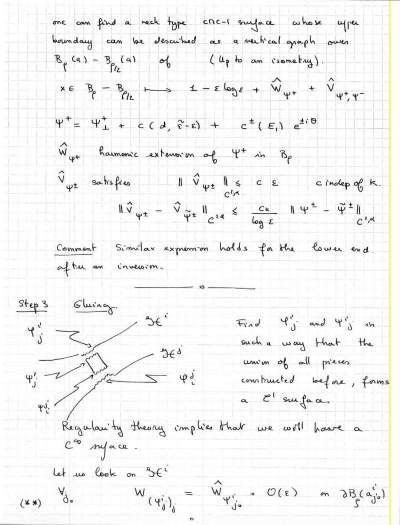 one can find a neck type cmc-1 surface whose upper
boundary can be described as a vertical graph over
B_ρ(a) - B_{ρ/2}(a) of (up to an isometry).
x ∈ B_ρ - B_{ρ/2} ⟼ 1 - ε log ε + Ŵ_{Ψ+} + V̂_{Ψ+,Ψ-}
Ψ^+ = Ψ^+_⊥ + c(d, ε̃-ε) + c^±(E_1) e^{±iθ}
Ŵ_{Ψ+} harmonic extension of Ψ^+ in B_ρ
V̂_{Ψ±} satisfies ‖V̂_{Ψ±}‖_{C^{2,α}} ≤ c ε c indep of κ.
‖V̂_{Ψ±} - V̂_{Ψ̃±}‖_{C^{2,α}} ≤ c_κ / log ε ‖Ψ^± - Ψ̃^±‖_{C^{2,α}}
Comment Similar expression holds for the lower end
after an inversion.
Step 3 Gluing.
φ^i_j ℋ^i Find φ^i_j and ψ^i_j in
such a way that the
ψ^i_j ℋ^j union of all pieces
ψ^j_i φ^j_i constructed before, forms
a C^1 surface.
Regularity theory implies that we will have a
C^∞ surface.
Let us look on ℋ^i
(**) ∀j_0 W_{(φ^i_j)_j} = Ŵ_{ψ^i_{j_0}} + O(ε) on ∂B_ρ(a^i_{j_0})